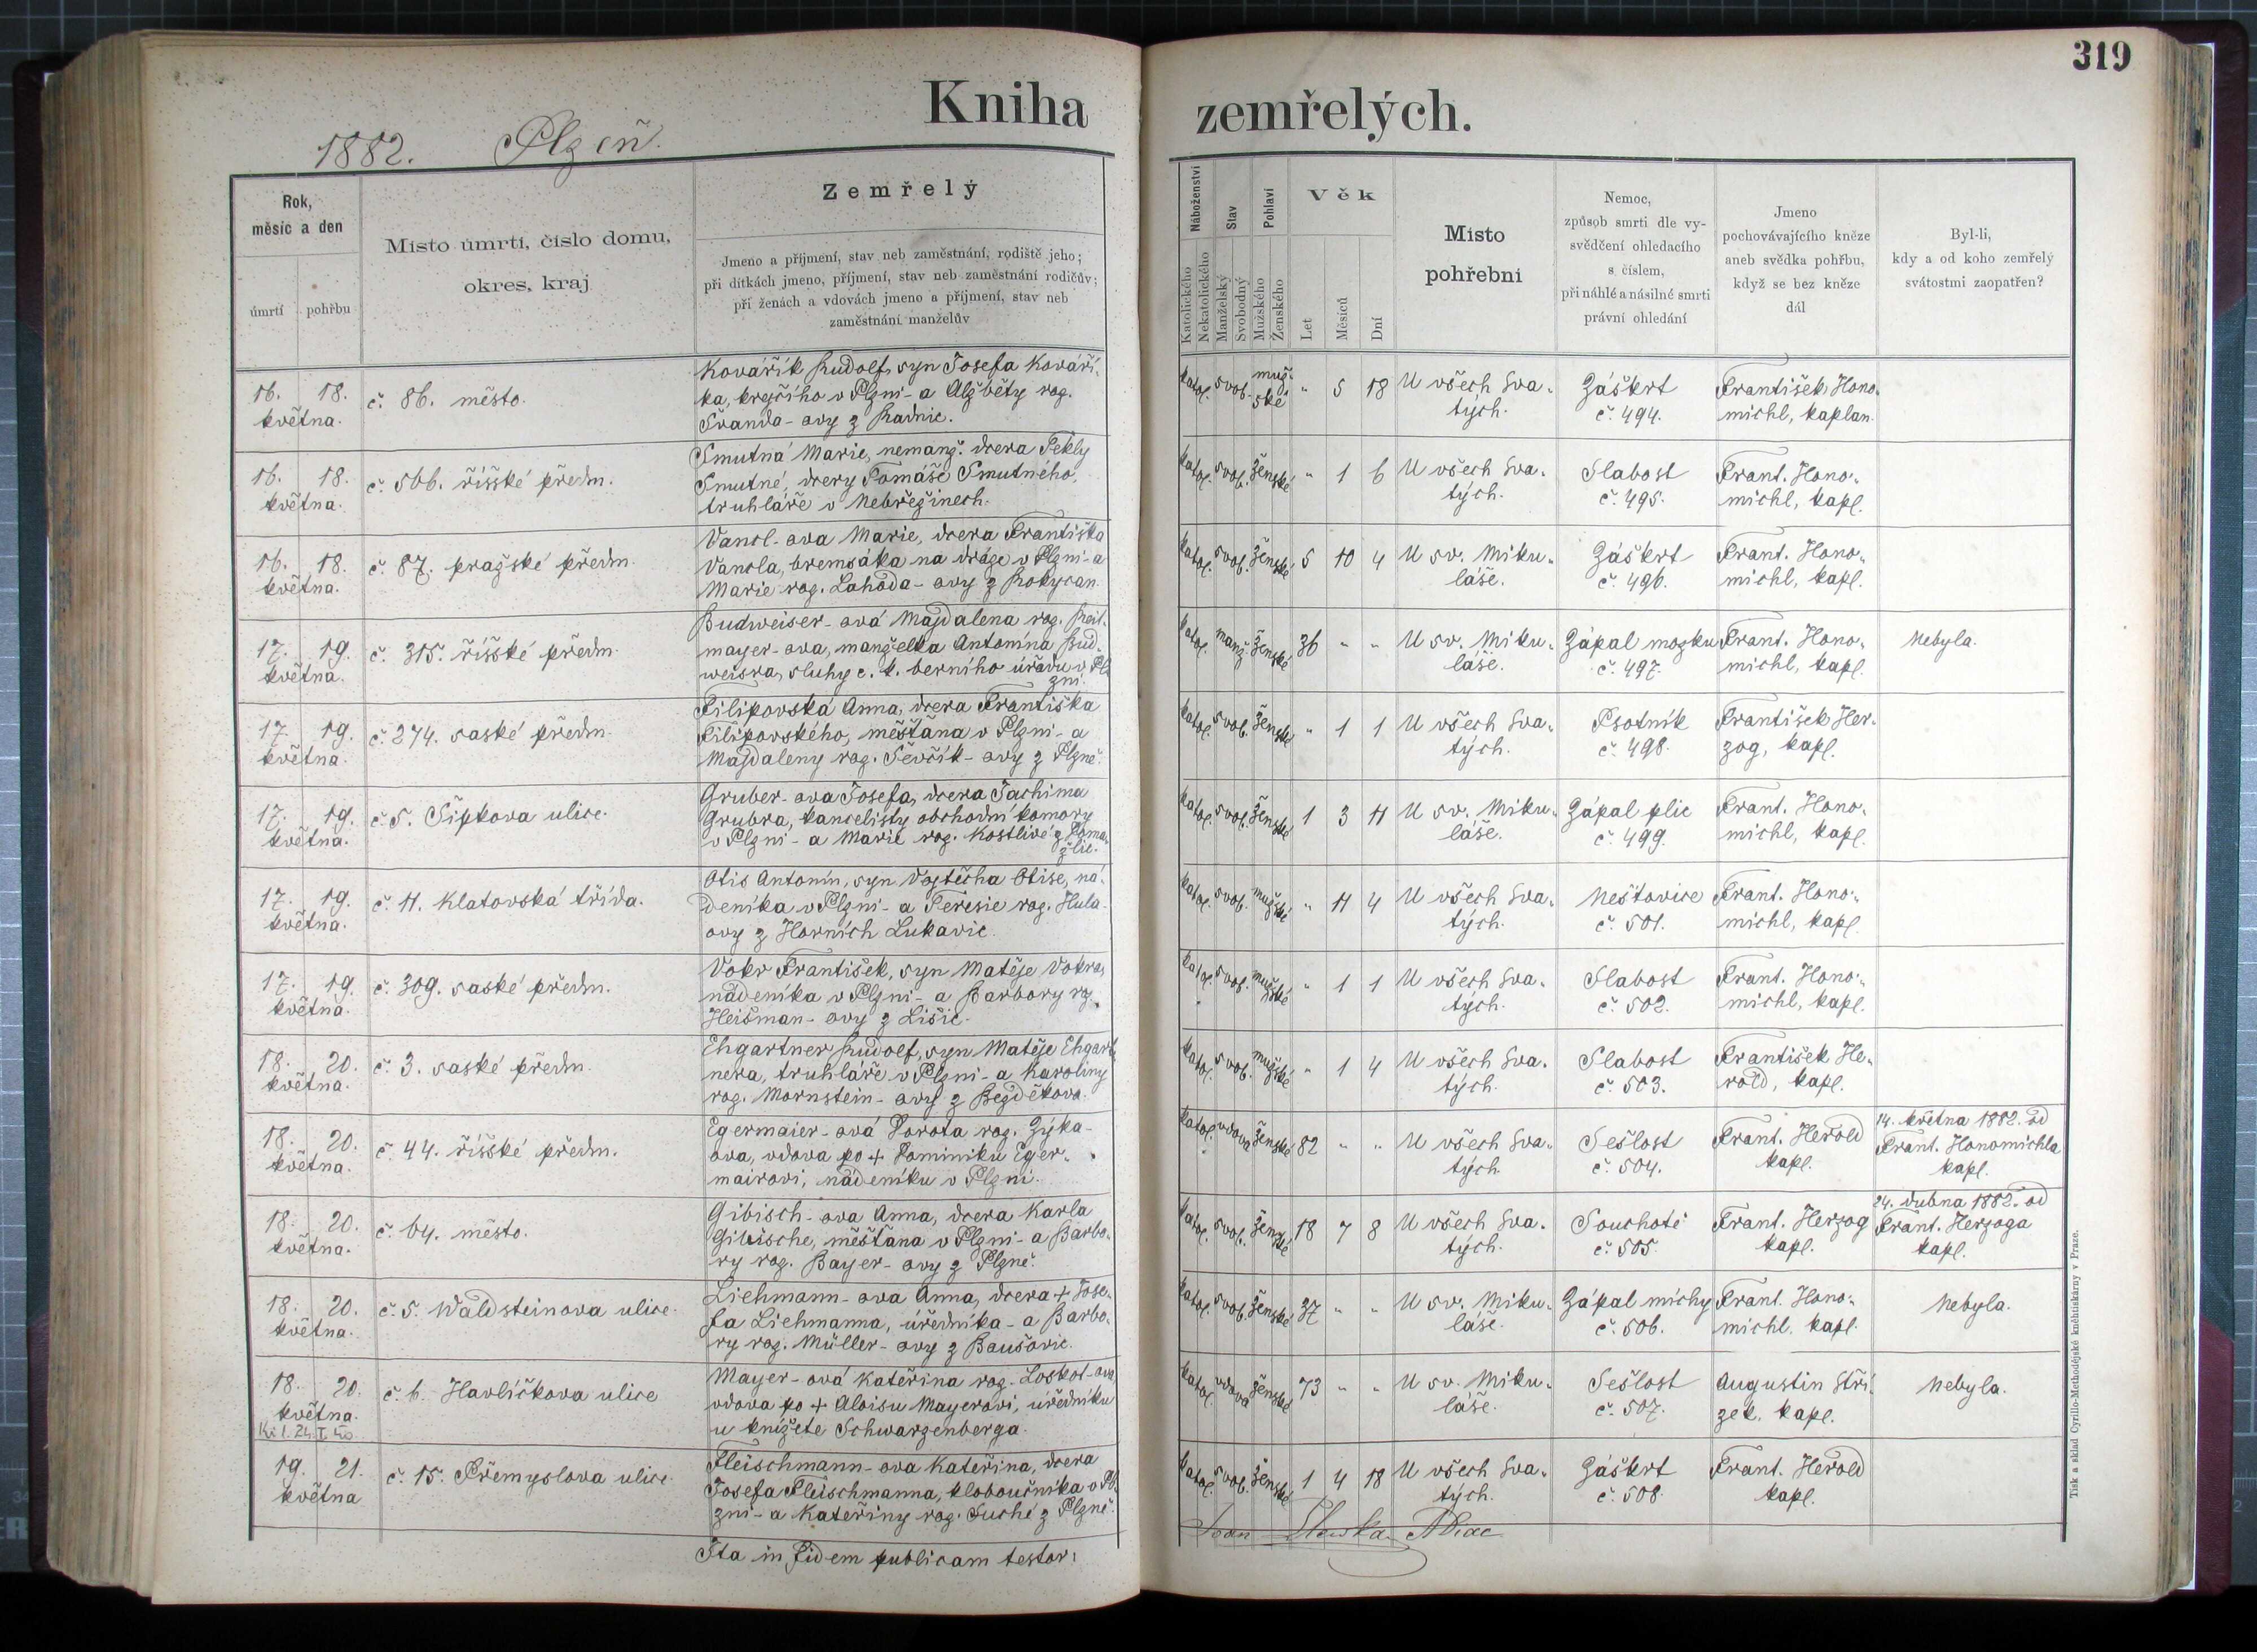 319
Kniha zemřelých.
1882. Plzeň.
Rok,
měsíc a den
úmrtí pohřbu
Místo úmrtí, číslo domu,
okres, kraj
Zemřelý
Jmeno a příjmení, stav neb zaměstnání, rodiště jeho;
při dítkách jmeno, příjmení, stav neb zaměstnání rodičův;
při ženách a vdovách jmeno a příjmení, stav neb
zaměstnání manželův
Náboženství
Katolického
Nekatolického
Stav
Manželský
Svobodný
Pohlaví
Mužského
Ženského
Věk
Let
Měsíců
Dní
Místo
pohřební
Nemoc,
způsob smrti dle vy-
svědčení ohledacího
s číslem,
při náhlé a násilné smrti
právní ohledání
Jmeno
pochovávajícího kněze
aneb svědka pohřbu,
když se bez kněze
dál
Byl-li,
kdy a od koho zemřelý
svátostmi zaopatřen?
16. 18.
května.
č. 86. město.
Kovářík Rudolf, syn Josefa Kováří-
ka, krejčího v Plzni - a Alžběty roz.
Švanda - ovy z Radnic.
katol. svob. muž-
ské " 5 18
U všech Sva-
tých.
Záškrt
č. 494.
František Hono-
michl, kaplan.
16. 18.
května.
č. 566. říšské předm.
Smutná Marie, nemanž. dcera Tekly
Smutné, dcery Tomáše Smutného,
truhláře v Nebřežinech.
katol. svob. ženské " 1 6
U všech Sva-
tých.
Slabost
č. 495.
Frant. Hono-
michl, kapl.
16. 18.
května.
č. 87. pražské předm.
Vancl - ova Marie, dcera Františka
Vancla, bremsáka na dráze v Plzni - a
Marie roz. Lahoda - ovy z Rokycan.
katol. svob. ženské 5 10 4
U sv. Miku-
láše.
Záškrt
č. 496.
Frant. Hono-
michl, kapl.
17. 19.
května.
č. 315. říšské předm.
Budweiser - ová Magdalena roz. Reit-
mayer - ova, manželka Antonína Bud-
weisra, sluhy c. k. berního úřadu v Pl-
zni.
katol. manž. ženské 36 " "
U sv. Miku-
láše.
Zápal mozku
č. 497.
Frant. Hono-
michl, kapl.
Nebyla.
17. 19.
května.
č. 274. saské předm.
Filipovská Anna, dcera Františka
Filipovského, měšťana v Plzni - a
Magdaleny roz. Ševčík - ovy z Plzně.
katol. svob. ženské " 1 1
U všech Sva-
tých.
Psotník
č. 498.
František Her-
zog, kapl.
17. 19.
května.
č. 5. Šipkova ulice.
Gruber - ova Josefa, dcera Jachima
Grubra, kancelisty obchodní komory
v Plzni - a Marie roz. Kostlivé z Doma-
žlic.
katol. svob. ženské 1 3 11
U sv. Miku-
láše.
Zápal plic
č. 499.
Frant. Hono-
michl, kapl.
17. 19.
května.
č. 11. Klatovská třída.
Otis Antonín, syn Vojtěcha Otise, ná-
deníka v Plzni - a Teresie roz. Hula-
ovy z Horních Lukavic.
katol. svob. mužské " 11 4
U všech Sva-
tých.
Neštovice
č. 501.
Frant. Hono-
michl, kapl.
17. 19.
května.
č. 309. saské předm.
Vokr František, syn Matěje Vokra,
nádeníka v Plzni - a Barbory roz.
Heišman - ovy z Lišic.
katol. svob. mužské " 1 1
U všech Sva-
tých.
Slabost
č. 502.
Frant. Hono-
michl, kapl.
18. 20.
května.
č. 3. saské předm.
Ehgartner Rudolf, syn Matěje Ehgart-
nera, truhláře v Plzni - a Karoliny
roz. Mornstein - ovy z Bezděkova.
katol. svob. mužské " 1 4
U všech Sva-
tých.
Slabost
č. 503.
František He-
rold, kapl.
18. 20.
května.
č. 44. říšské předm.
Egermaier - ová Dorota roz. Zýka-
ova, vdova po + Dominiku Eger-
mairovi, nádeníku v Plzni.
katol. vdova ženské 82 " "
U všech Sva-
tých.
Sešlost
č. 504.
Frant. Herold
kapl.
14. května 1882. od
Frant. Honomichla
kapl.
18. 20.
května.
č. 64. město.
Gibisch - ova Anna, dcera Karla
Gibische, měšťana v Plzni - a Barbo-
ry roz. Bayer - ovy z Plzně.
katol. svob. ženské 18 7 8
U všech Sva-
tých.
Souchotě
č. 505.
Frant. Herzog
kapl.
24. dubna 1882. od
Frant. Herzoga
kapl.
18. 20.
května.
č. 5. Waldsteinova ulice.
Liehmann - ova Anna, dcera + Jose-
fa Liehmanna, úředníka - a Barbo-
ry roz. Müller - ovy z Baušovic.
katol. svob. ženské 37 " "
U sv. Miku-
láše.
Zápal míchy
č. 506.
Frant. Hono-
michl, kapl.
Nebyla.
18. 20.
května.
č. 6. Havlíčkova ulice
Mayer - ová Kateřina roz. Loskot - ova
vdova po + Aloisu Mayerovi, úředníku
u knížete Schwarzenberga.
katol. vdova ženské 73 " "
U sv. Miku-
láše.
Sešlost
č. 507.
Augustin Stří-
zek, kapl.
Nebyla.
19. 21.
května
č. 15. Přemyslova ulice.
Fleischmann - ova Kateřina, dcera
Josefa Fleischmanna, kloboučníka v Pl-
zni - a Kateřiny roz. Suché z Plzně.
katol. svob. ženské 1 4 18
U všech Sva-
tých.
Záškrt
č. 508.
Frant. Herold
kapl.
Ita in fidem publicam testor:
Tisk a sklad Cyrillo-Methodějské knihtiskárny v Praze.